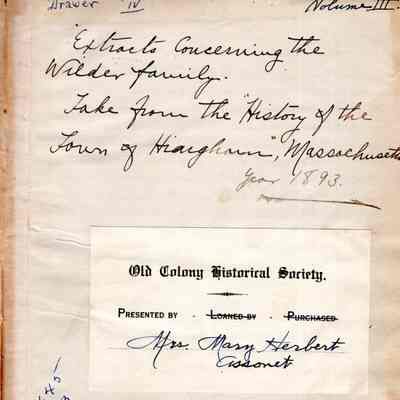 Drawer IV Volume III.
"Extracts Concerning the
Wilder family.
Take from the "History of the
Town of Hingham", Massachusetts
Year 1893.
Old Colony Historical Society.
PRESENTED BY · LOANED BY · PURCHASED
Mrs. Mary Herbert
Assonet